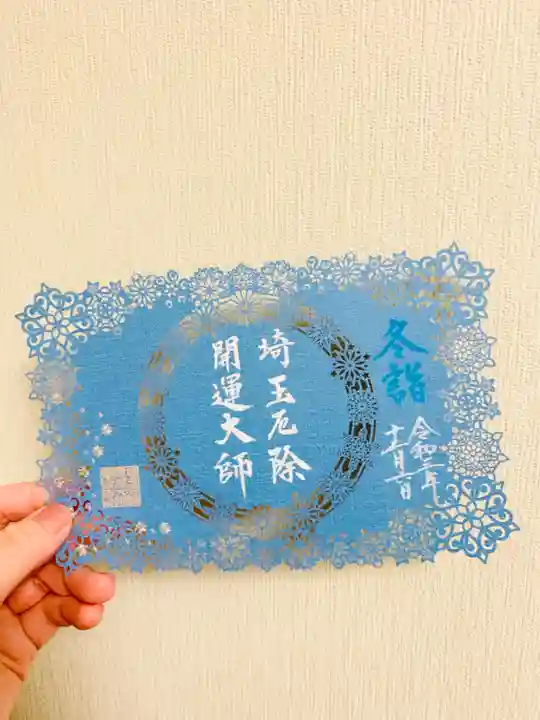 冬詣
令和三年
十二月
埼玉厄除
開運大師